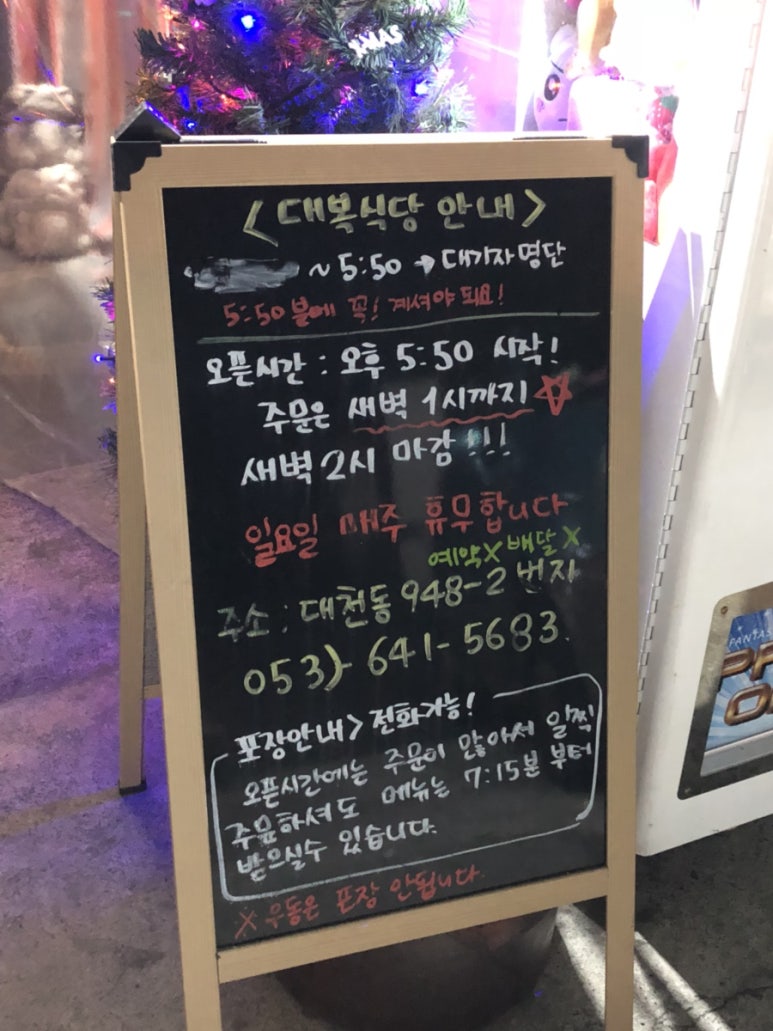 XMAS
<대복식당 안내>
~5:50 → 대기자명단
5:50분에 꼭! 계셔야 되요!
오픈시간 : 오후 5:50 시작!
주문은 새벽 1시까지 ☆
새벽2시 마감!!!
일요일 매주 휴무합니다
예약X 배달X
주소 : 대천동 948-2 번지
053)-641-5683.
포장안내> 전화가능!
오픈시간에는 주문이 많아서 일찍
주문하셔도 메뉴는 7:15분 부터
받으실수 있습니다.
X 우동은 포장 안됩니다.